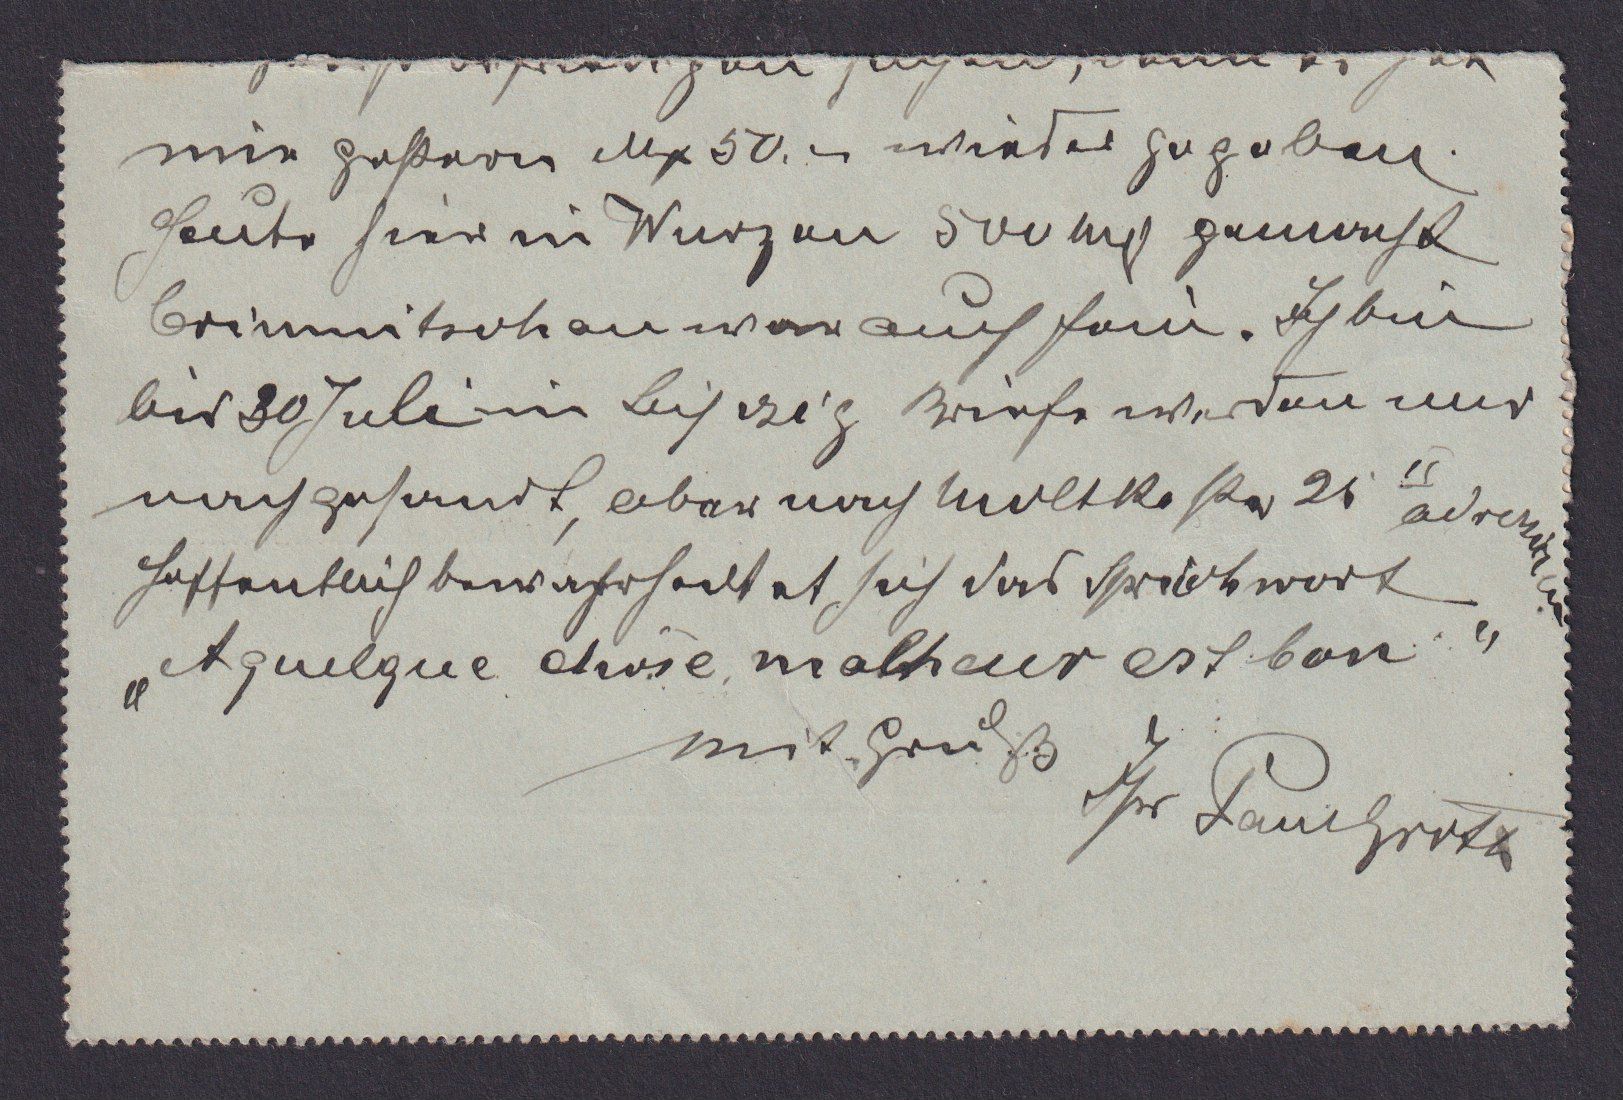 suchen, denn er hat
mir gestern Mk 50.– wieder gegeben.
Heute hier in Wurzen 500 Mk gemacht
Crimmitschau war auch fein. Ich bin
bis 30 Juli in Leipzig Briefe werden mir
nachgesandt, aber nach Moltkestr 21 II adressiren
Hoffentlich bewahrheitet sich das Sprichwort
„A quelque chose malheur est bon"
mit Gruß
Ihr Paul Grotz